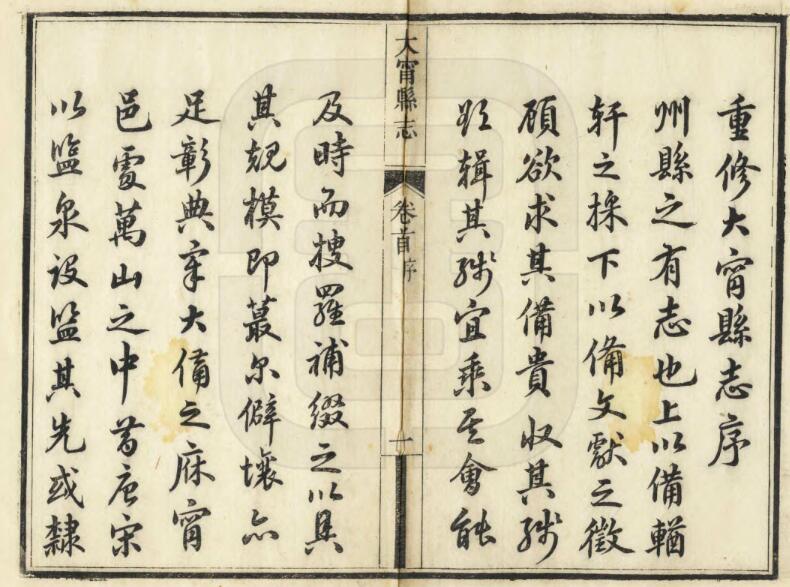 重修大甯縣志序
州縣之有志也上以備輶
軒之採下以備文獻之徵
顧欲求其備貴收其殘
輯其殘宜乘其會能
大甯縣志 卷首 序 一
及時而搜羅補綴之以具
其規模即蕞爾僻壤亦
足彰典章大備之庥甯
邑處萬山之中昔唐宋
以監泉設監其先或隸